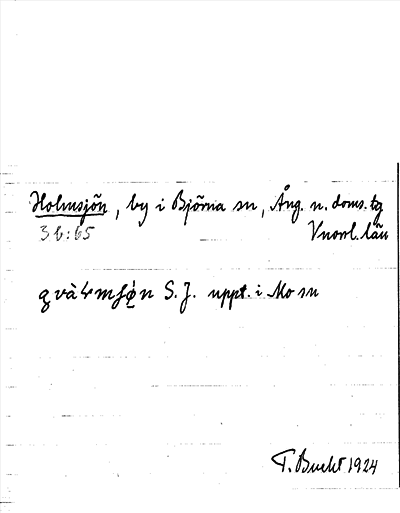 Holmsjön, by i Björna sn, Ång. n. doms. tg
36:65 Vnorrl. län
S. J. uppt. i Mo sn
T. Bucht 1924